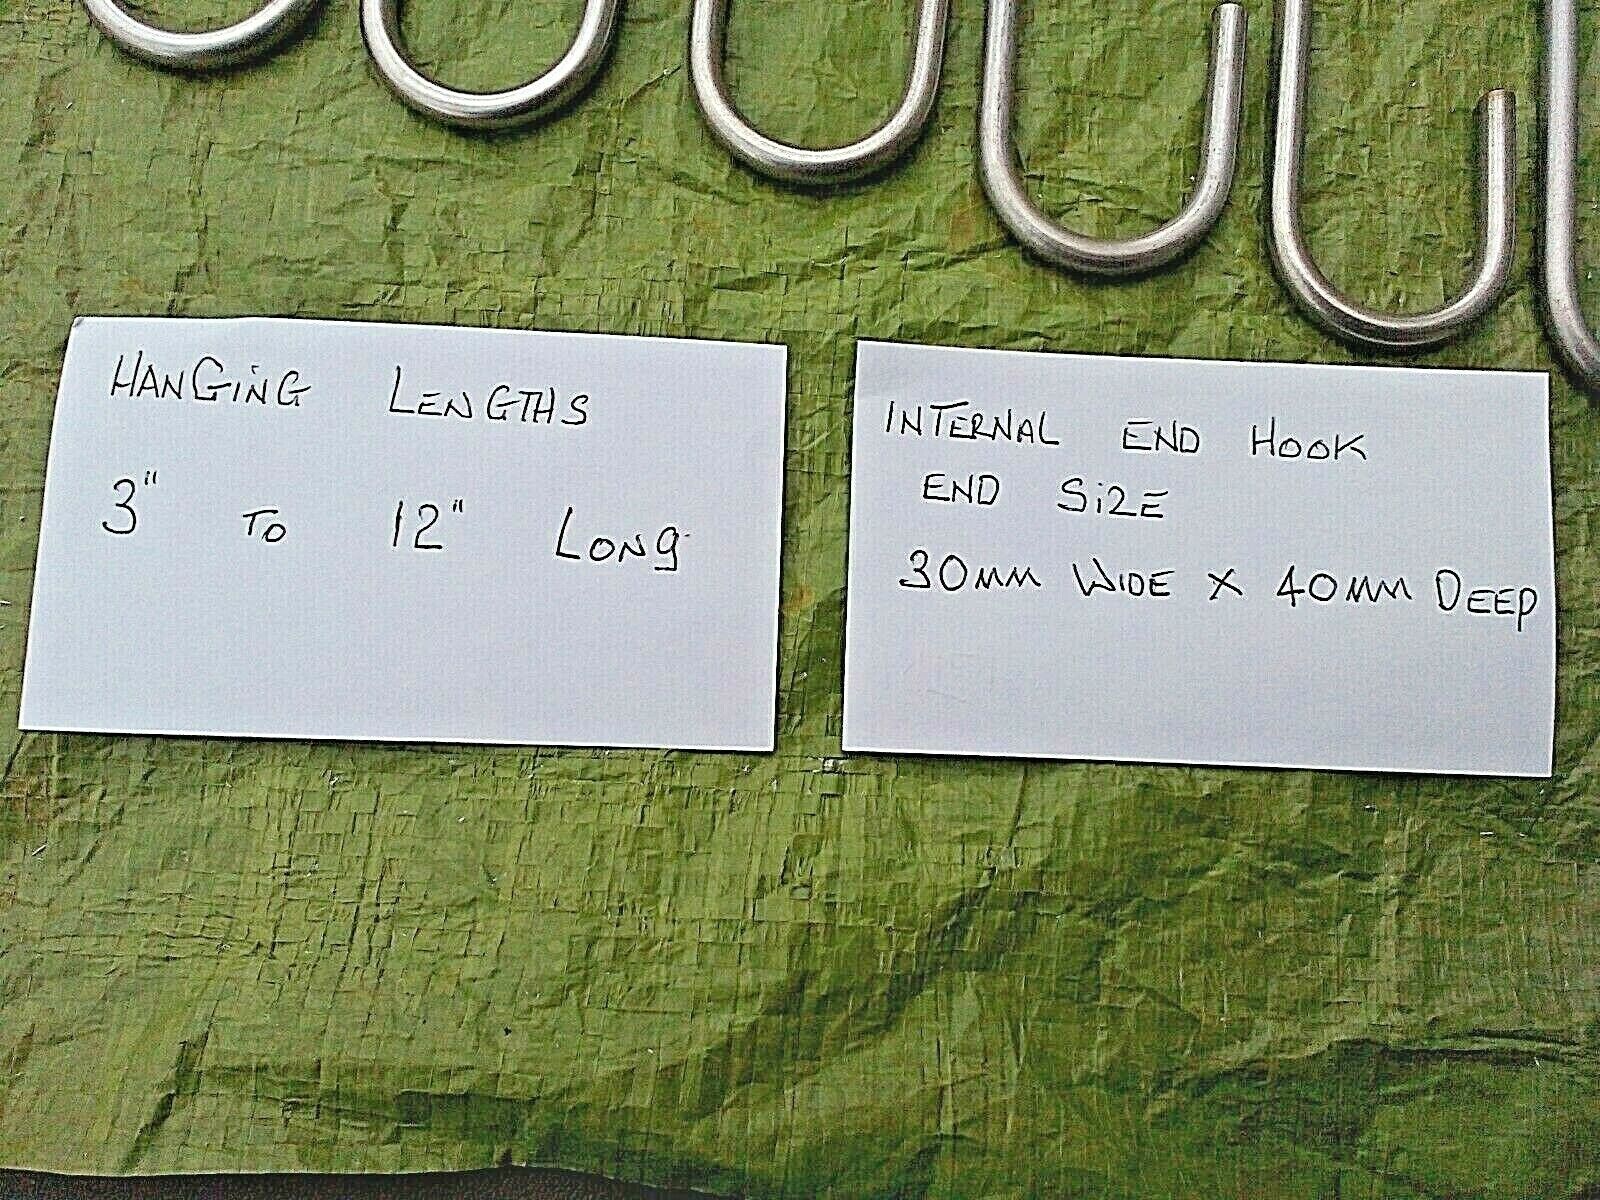 HANGiNG LENGTHS
3" To 12" LONG
INTERNAL END HOOK
END SiZE
30MM WIDE X 40MM DEEP